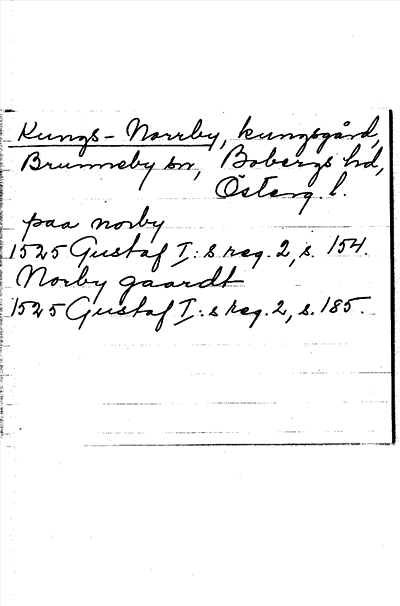 Kungs-Norrby, kungsgård,
Brunneby sn, Bobergs hd,
Österg. l.
paa norby
1525 Gustaf I:s reg. 2, s. 154.
Norby gaardt
1525 Gustaf I:s reg. 2, s. 185.